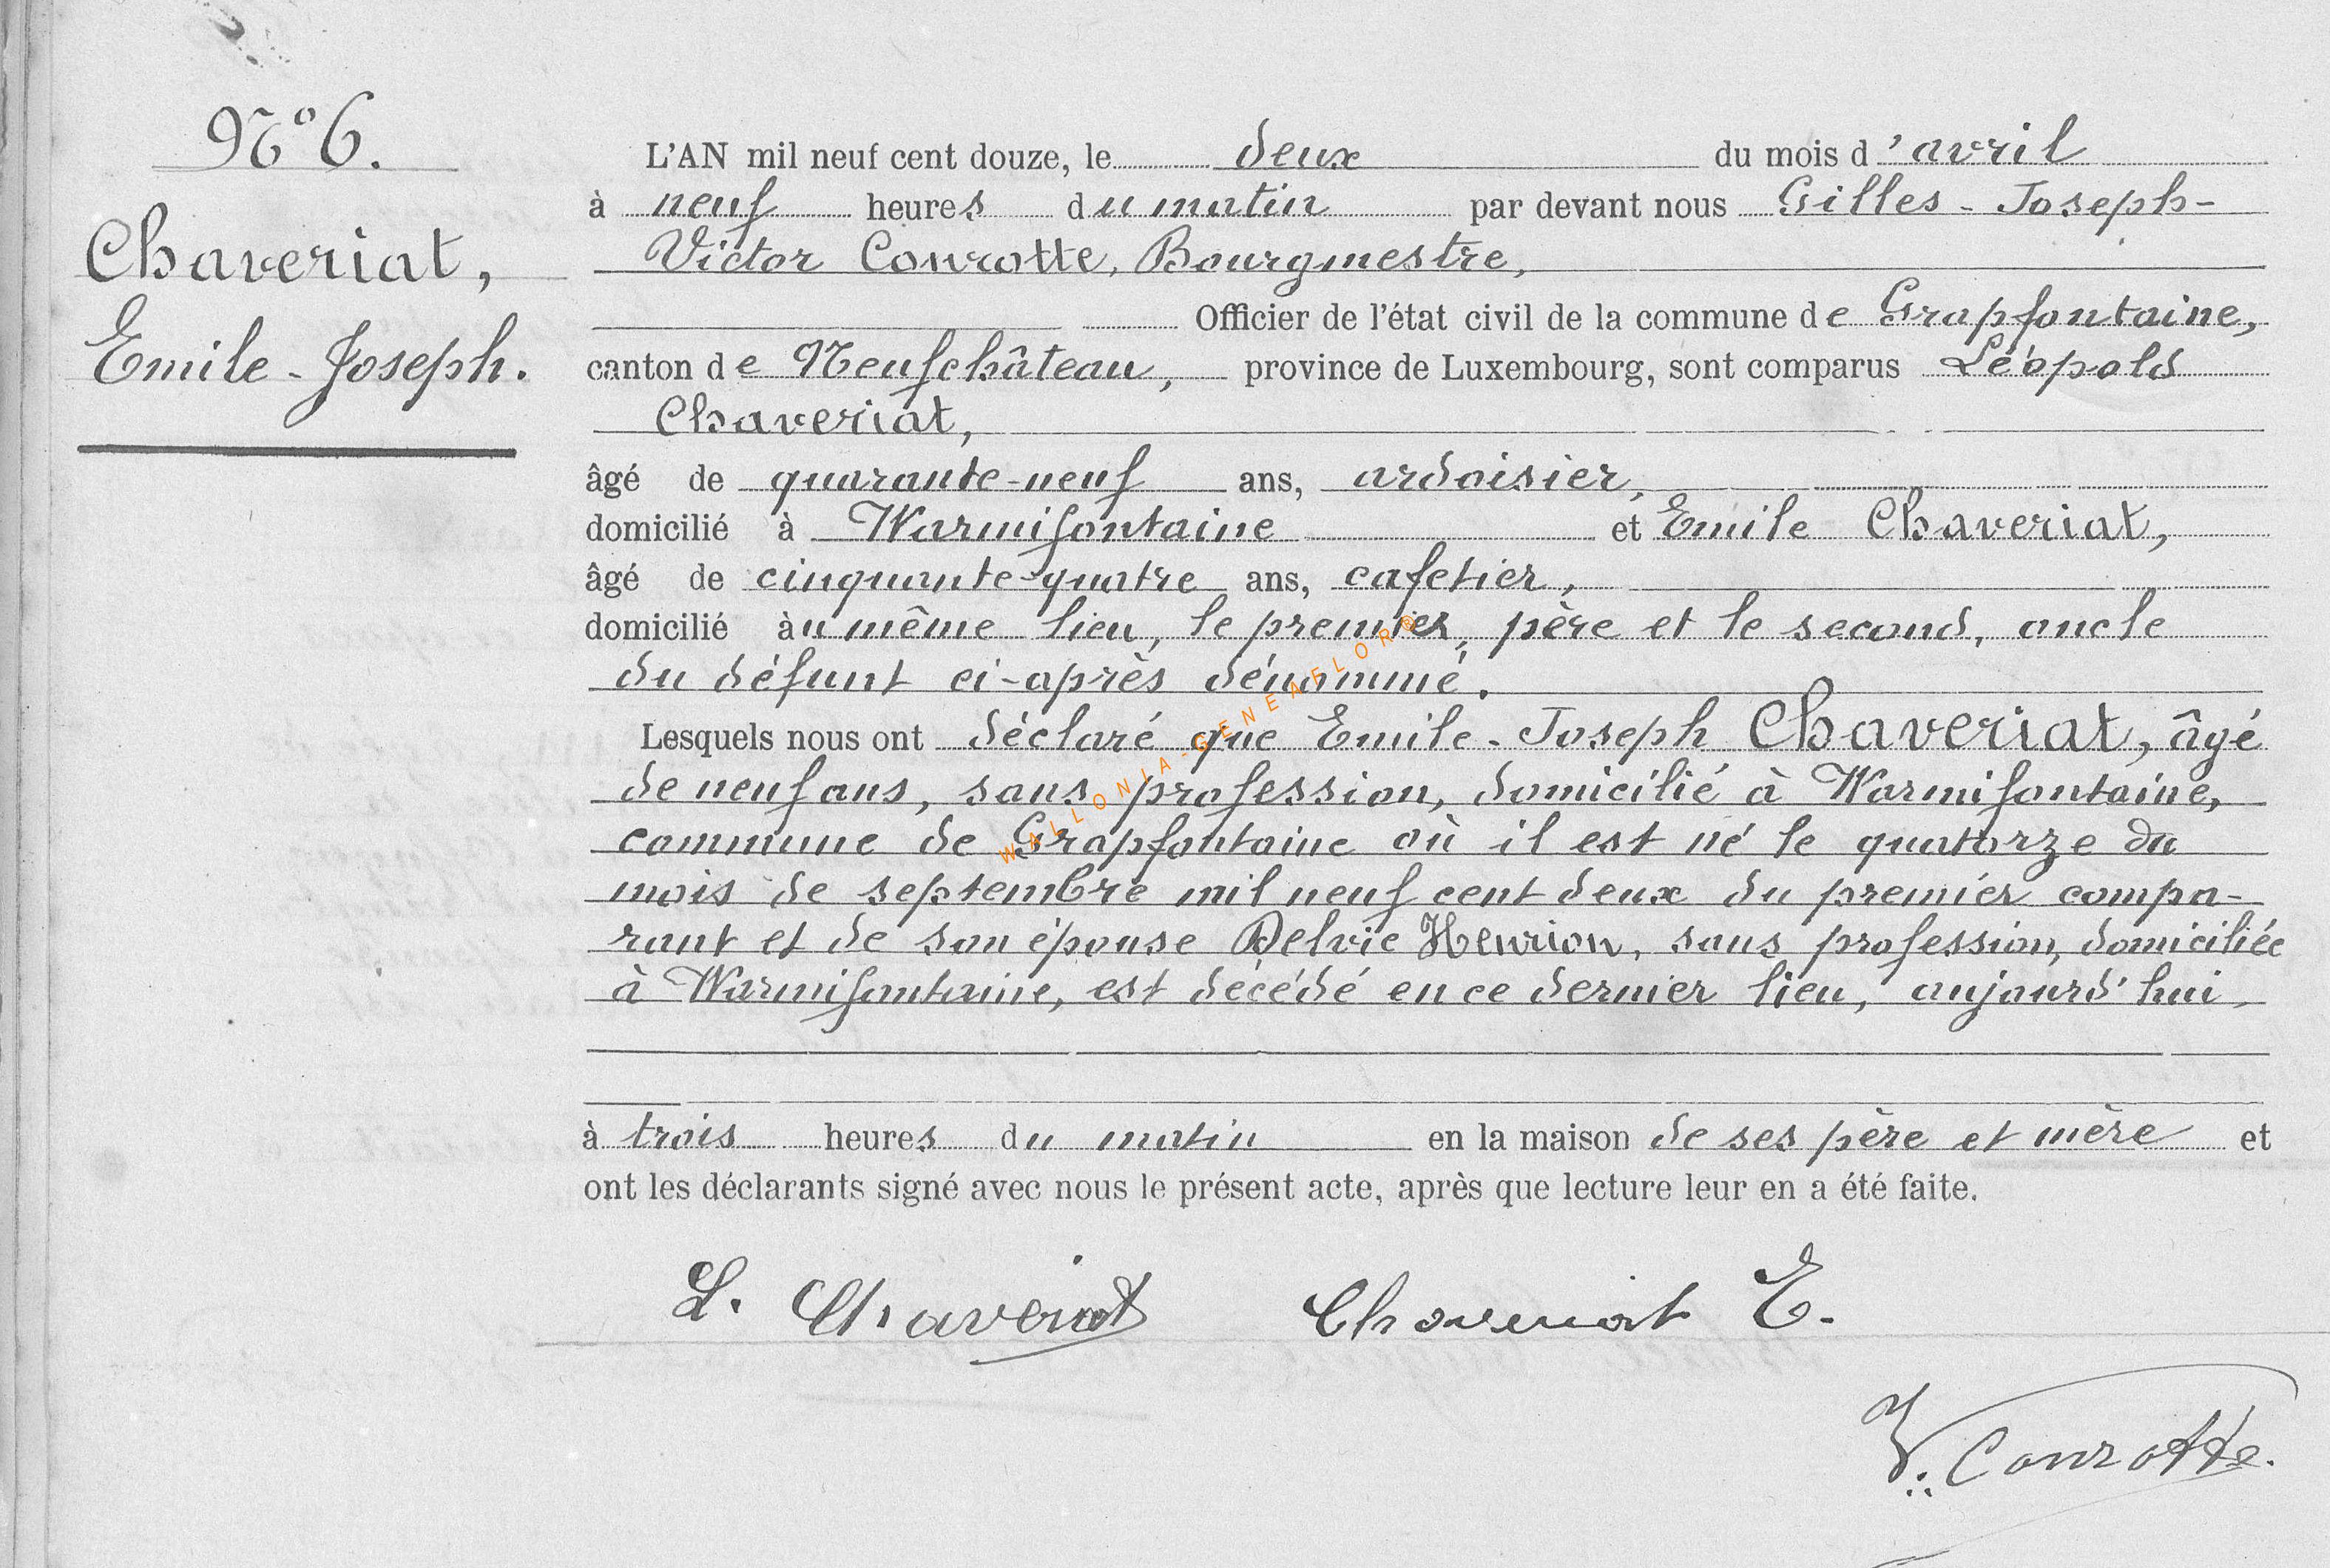 N° 6.
Chaveriat,
Emile-Joseph.
L'AN mil neuf cent douze, le deux du mois d'avril
à neuf heures du matin par devant nous Gilles-Joseph-
Victor Conrotte, Bourgmestre,
Officier de l'état civil de la commune de Grapfontaine,
canton de Neufchâteau, province de Luxembourg, sont comparus Léopold
Chaveriat,
âgé de quarante-neuf ans, ardoisier,
domicilié à Warmifontaine et Emile Chaveriat,
âgé de cinquante-quatre ans, cafetier,
domicilié àu même lieu, le premier, père et le second, oncle
du défunt ci-après dénommé.
Lesquels nous ont déclaré que Emile-Joseph Chaveriat, âgé
de neuf ans, sans profession, domicilié à Warmifontaine,
commune de Grapfontaine où il est né le quatorze du
mois de septembre mil neuf cent deux du premier compa-
rant et de son épouse Delvie Henrion, sans profession, domiciliée
à Warmifontaine, est décédé en ce dernier lieu, aujourd'hui,
à trois heures du matin en la maison de ses père et mère et
ont les déclarants signé avec nous le présent acte, après que lecture leur en a été faite.
L. Chaveriat Chaveriat E.
V. Conrotte.
WALLONIA-GENEAFLOR®